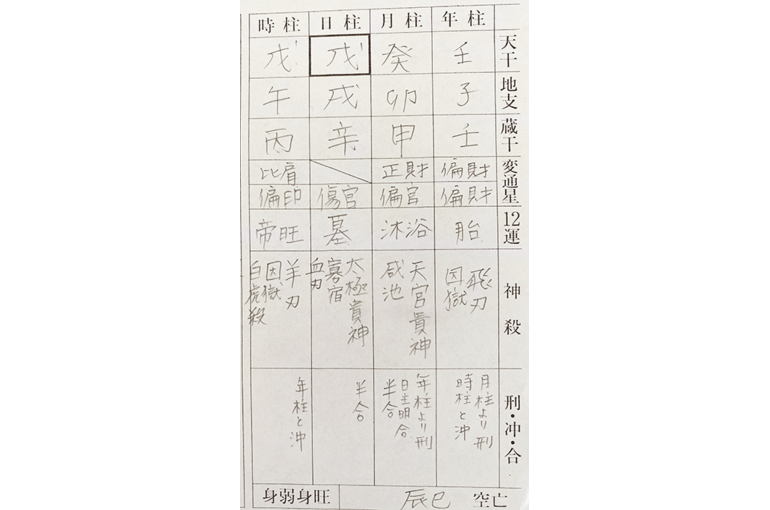 時柱 日柱 月柱 年柱
戊 戊 癸 壬 天干
午 戌 卯 子 地支
丙 辛 甲 壬 蔵干
比肩 正財 偏財 変通星
偏印 傷官 偏官 偏財
帝旺 墓 沐浴 胎 12運
羊刃
囚獄
白虎殺
太極貴神
寡宿
血刃
天官貴神
咸池
飛刃
囚獄
神殺
年柱と冲
半合
年柱より刑
日主明合
半合
月柱より刑
時柱と冲
刑・冲・合
身弱身旺 辰巳 空亡